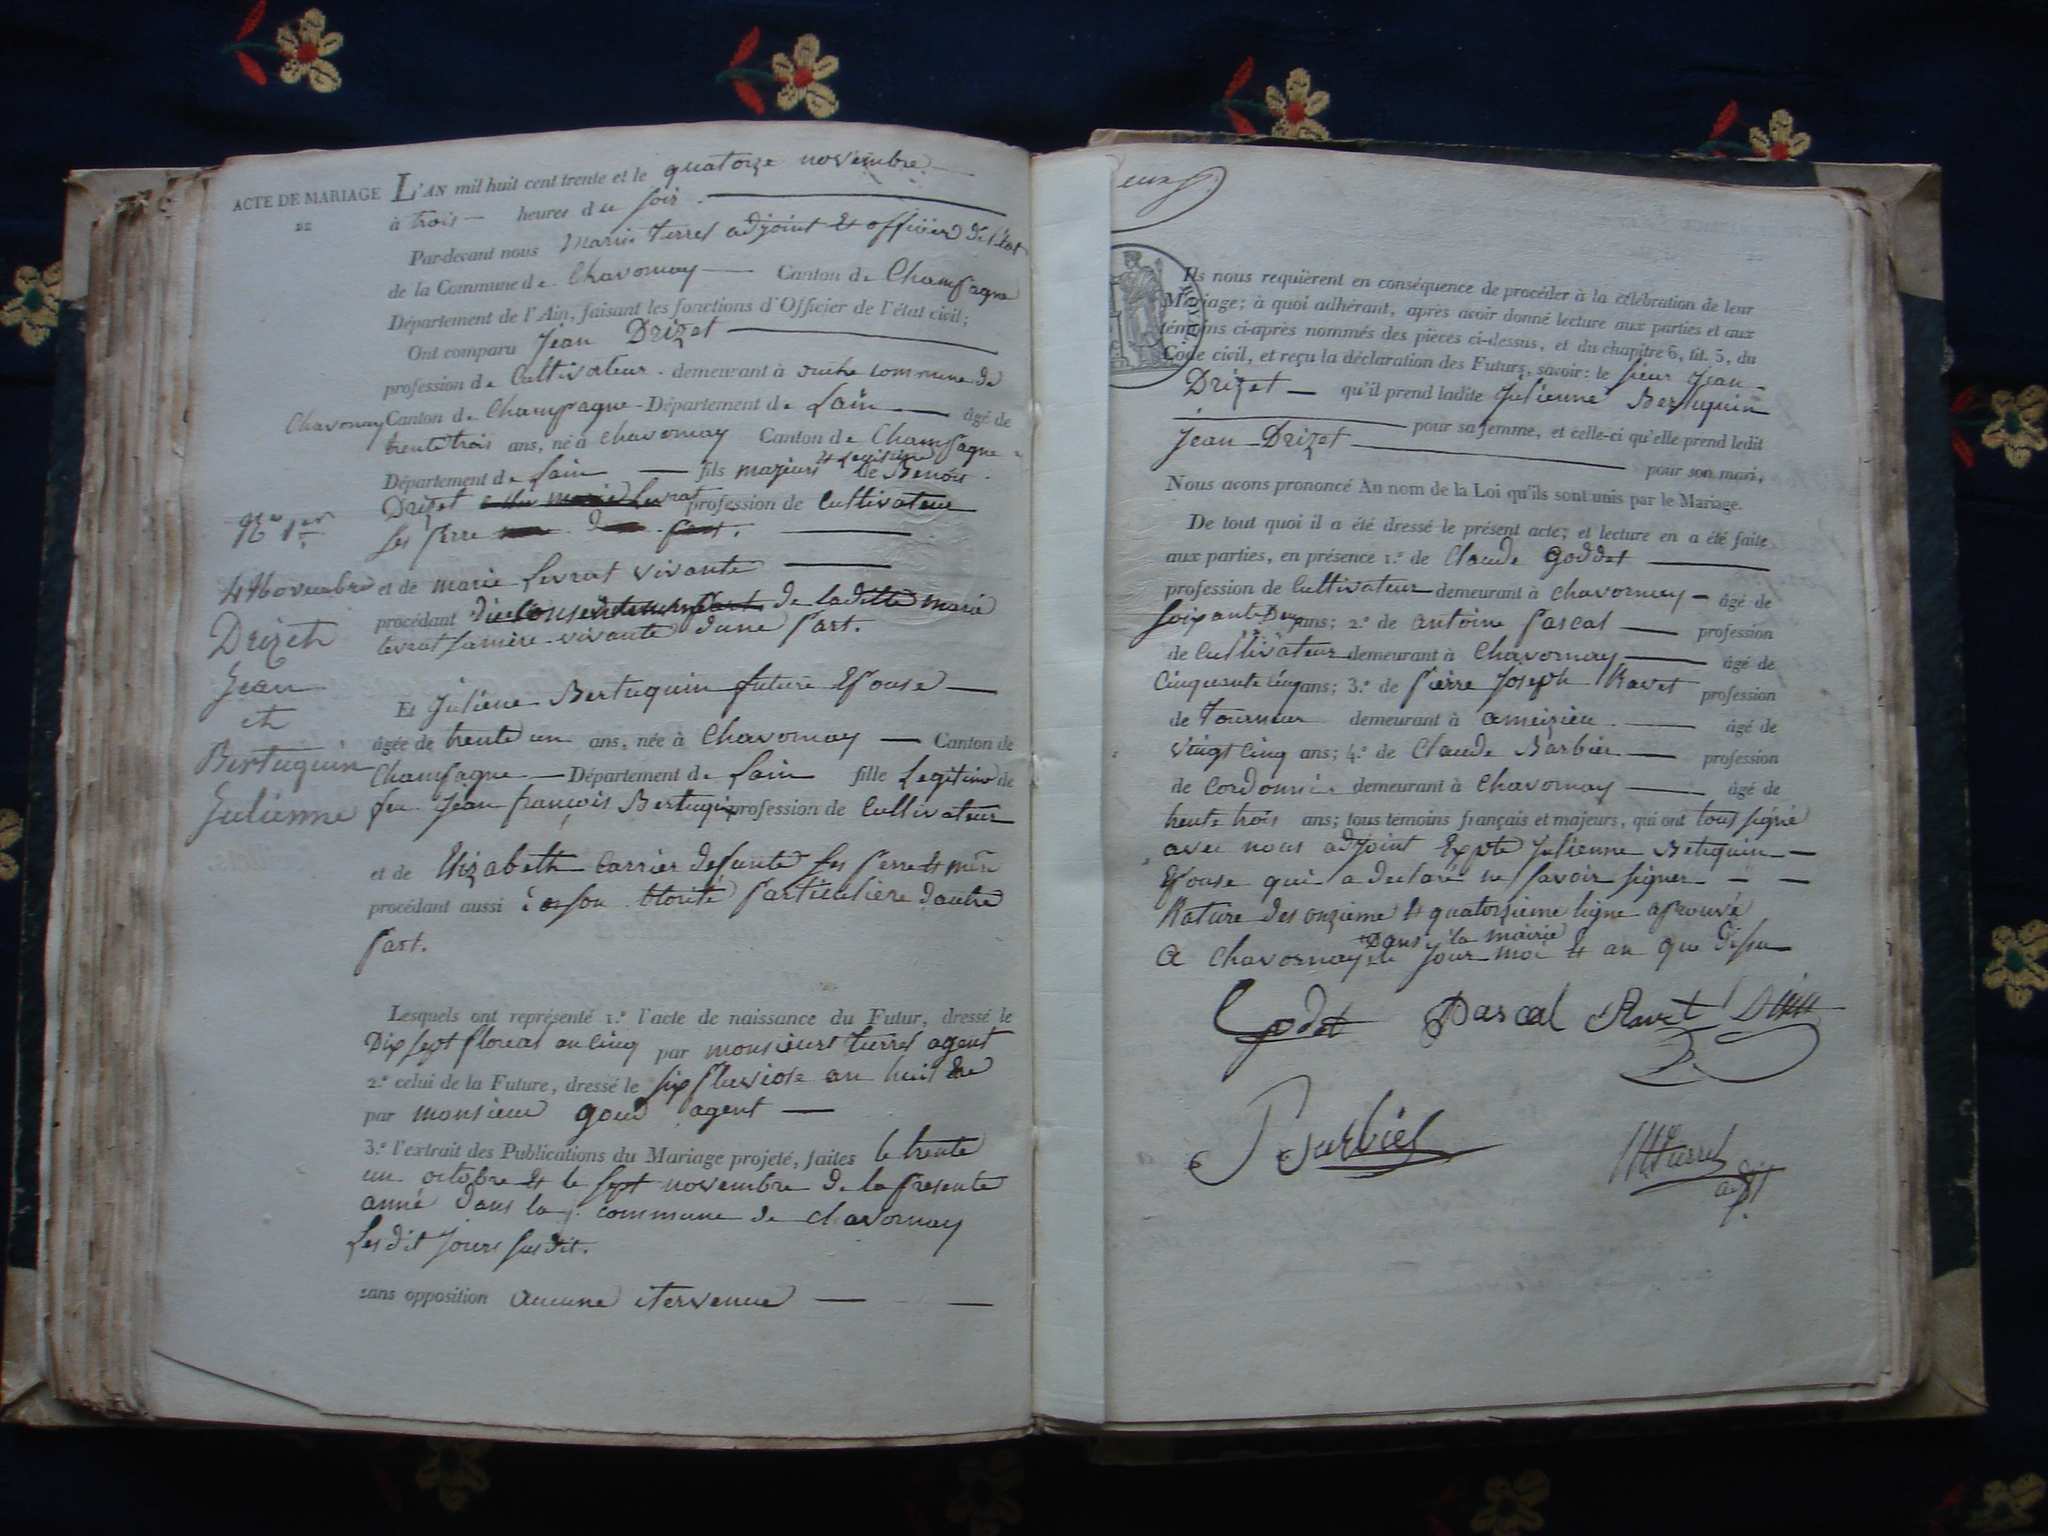 ACTE DE MARIAGE
DE
L'AN mil huit cent trente et le quatorze novembre
à trois heures du soir
Par-devant nous Marin Turrel adjoint et officier de l'état
de la Commune de Chavornay Canton de Champagne
Département de l'Ain, faisant les fonctions d'Officier de l'état civil;
Ont comparu Jean Drizet
profession de Cultivateur demeurant à ditte commune de
Chavornay Canton de Champagne Département de Lain âgé de
trente trois ans, né à Chavornay Canton de Champagne
Département de Lain fils majeur et legitime de Benoit
Drizet et de marie Levrat profession de Cultivateur
Les perre
et de marie Levrat vivante
procédant du consentement de laditte marie
Levrat sa mère vivante dune part.
N° 1er
14 Novembre
Drizeth
Jean
et
Bertuquin
Julienne
Et Juliene Bertuquin future Epouse
âgée de trente un ans, née à Chavornay Canton de
Champagne Département de Lain fille Legitime de
feu Jean françois Bertuquin profession de Cultivateur
et de Elizabeth Carrier defunte Ses perre et mère
procédant aussi particuliere dautre
part.
Lesquels ont représenté 1.º l'acte de naissance du Futur, dressé le
Dix sept floreal an cinq par monsieur Turrel agent
2.º celui de la Future, dressé le six pluviose an huit
par monsieur agent
3.º l'extrait des Publications du Mariage projeté, faites le trente
un octobre et le sept novembre de la presente
anné dans la commune de Chavornay
Les dit jours susdit.
sans opposition aucune itervenue
Ils nous requièrent en conséquence de procéder à la célébration de leur
Mariage; à quoi adhérant, après avoir donné lecture aux parties et aux
témoins ci-après nommés des pièces ci-dessus, et du chapitre 6, tit. 5, du
Code civil, et reçu la déclaration des Futurs, savoir: le sieur Jean
Drizet qu'il prend ladite Julienne Bertuquin
pour sa femme, et celle-ci qu'elle prend ledit
Jean Drizet pour son mari,
Nous avons prononcé Au nom de la Loi qu'ils sont unis par le Mariage.
De tout quoi il a été dressé le présent acte; et lecture en a été faite
aux parties, en présence 1.º de Claude Goddet
profession de Cultivateur demeurant à Chavornay âgé de
soixant-Deux ans; 2.º de antoine pascal profession
de Cultivateur demeurant à Chavornay âgé de
Cinquante cinq ans; 3.º de pierre Joseph Ravet profession
de Tourneur demeurant à ameizieu âgé de
vingt cinq ans; 4.º de Claude Barbier profession
de Cordonnier demeurant à Chavornay âgé de
trente trois ans; tous témoins français et majeurs, qui ont tous signé
avec nous adjoint Expte Julienne Betuquin
Epouse qui a declaré ne savoir signer
Rature des onzieme et quatorzieme ligne aprouvé
Dans la mairie
a Chavornay le jour moi et an que dessu
Godet Pascal Ravet Drizet
Barbier
M Turrel
adjt